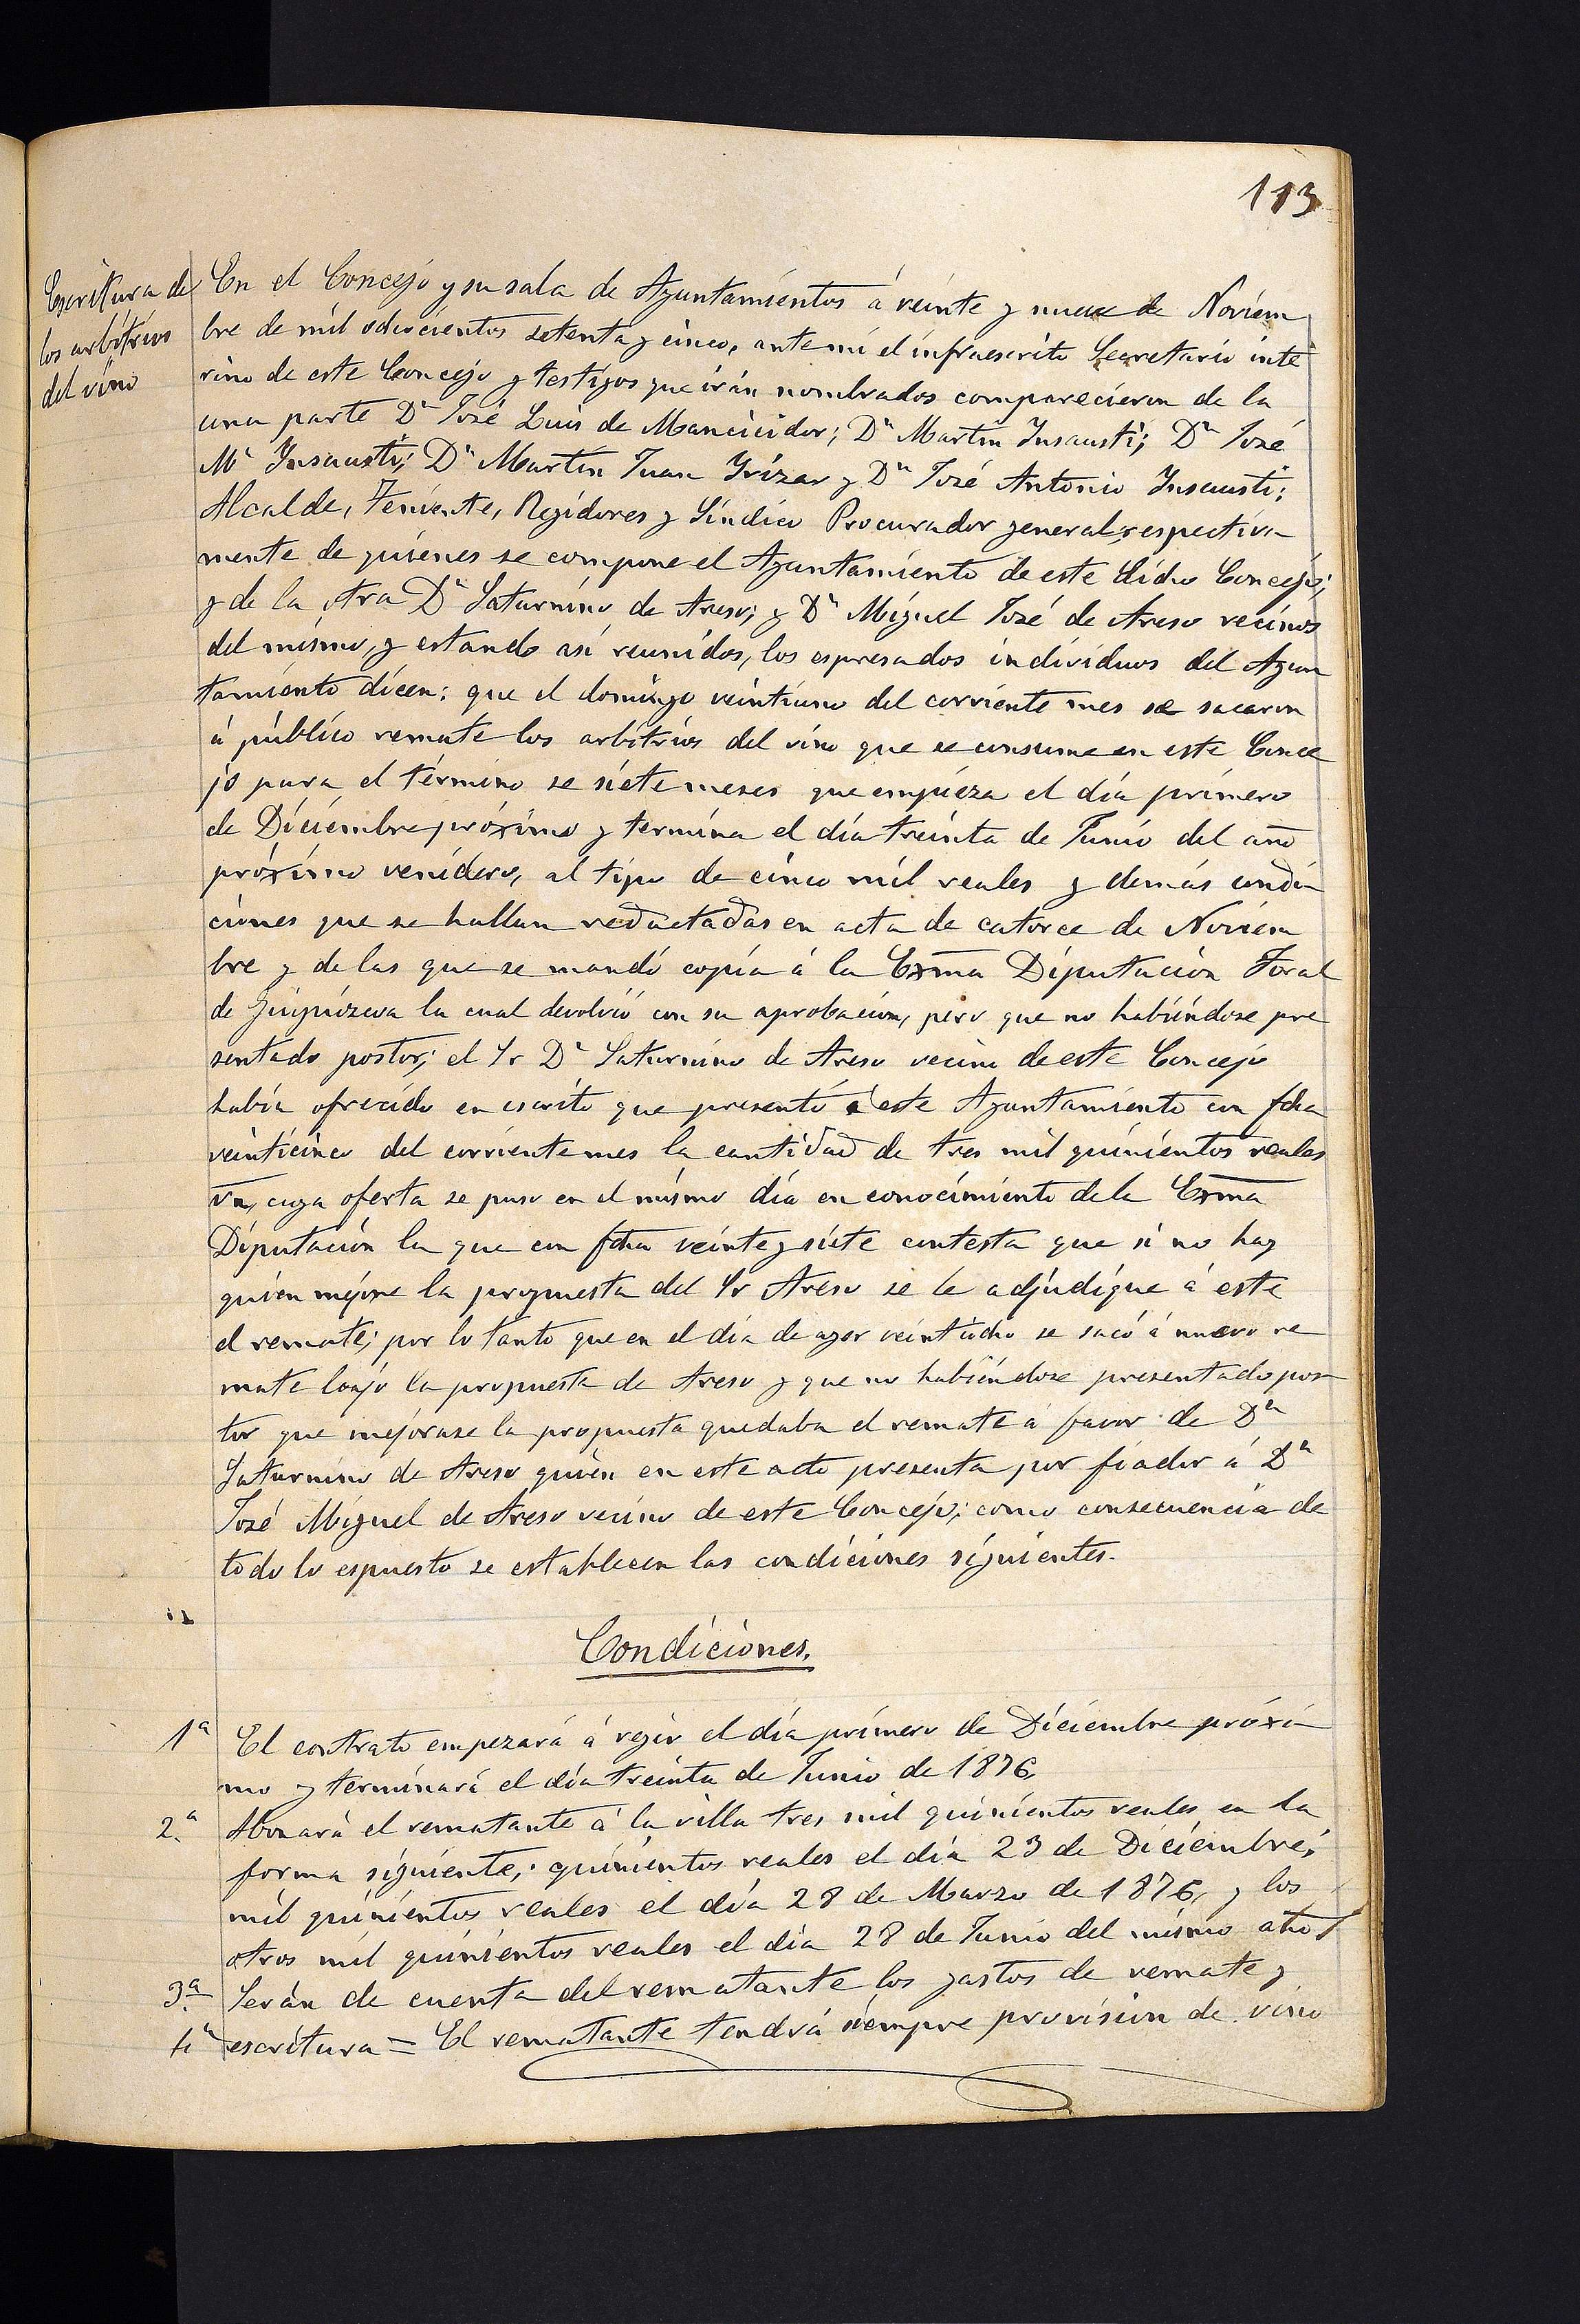 113
Escritura de
los arbitrios
del vino
En el Concejo y su sala de Ayuntamientos á veinte y nueve de Noviem
bre de mil ochocientos setenta y cinco, ante mi el infraescrito Secretario inte
rino de este Concejo y testigos que irán nombrados comparecieron de la
una parte Dn José Luis de Mancicidor; Dn Martin Insausti; Dn José
Ma Insausti; Dn Martín Juan Yrizar y Dn José Antonio Insausti;
Alcalde, Teniente, Regidores y Síndico Procurador general respectiva
mente de quienes se compone el Ayuntamiento de este dicho Concejo;
y de la otra Dn Saturnino de Areso; y Dn Miguel José de Areso vecinos
del mismo, y estando así reunidos, los espresados individuos del Ayun
tamiento dicen: que el domingo veintiuno del corriente mes se sacaron
á público remate los arbitrios del vino que se consume en este Conce
jo para el término se siete meses que empieza el día primero
de Diciembre próximo y termina el día treinta de Junio del año
próximo venidero, al tipo de cinco mil reales y demás condi
ciones que se hallan redactadas en acta de catorce de Noviem
bre y de las que se mandó copia á la Exma Diputación Foral
de Guipúzcoa la cual devolvió con su aprobación, pero que no habiéndose pre
sentado postor; el Sr Dn Saturnino de Areso vecino de este Concejo
había ofrecido en escrito que presentó á este Ayuntamiento con fcha
veinticinco del corriente mes la cantidad de tres mil quinientos reales
vn, cuya oferta se puso en el mismo día en conocimiento de la Exma
Diputación la que con fcha veinte y siete contesta que si no hay
quien mejore la propuesta del Sr Areso se le adjudique á este
el remate; por lo tanto que en el día de ayer veintiocho se sacó á nuevo re
mate bajo la propuesta de Areso y que no habiéndose presentado pos
tor que mejorase la propuesta quedaba el remate á favor de Dn
Saturnino de Areso quien en este acto presenta por fiador á Dn
José Miguel de Areso vecino de este Concejo; como consecuencia de
todo lo espuesto se establecen las condiciones siguientes.
Condiciones.
1a El contrato empezará á regir el día primero de Diciembre próxi
mo y terminará el día treinta de Junio de 1876,
2.a Abonará el rematante á la villa tres mil quinientos reales en la
forma siguiente; quinientos reales el día 23 de Diciembre;
mil quinientos reales el día 28 de Marzo de 1876, y los
otros mil quinientos reales el día 28 de Junio del mismo año
3.a Serán de cuenta del rematante los gastos de remate y
4a escritura = El rematante tendrá siempre provisión de vino